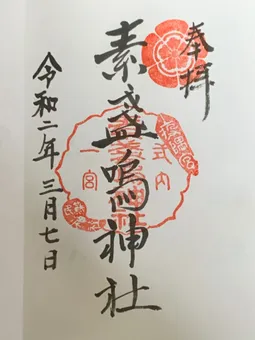 奉拝
素盞嗚神社
式内
一宮
令和二年三月七日